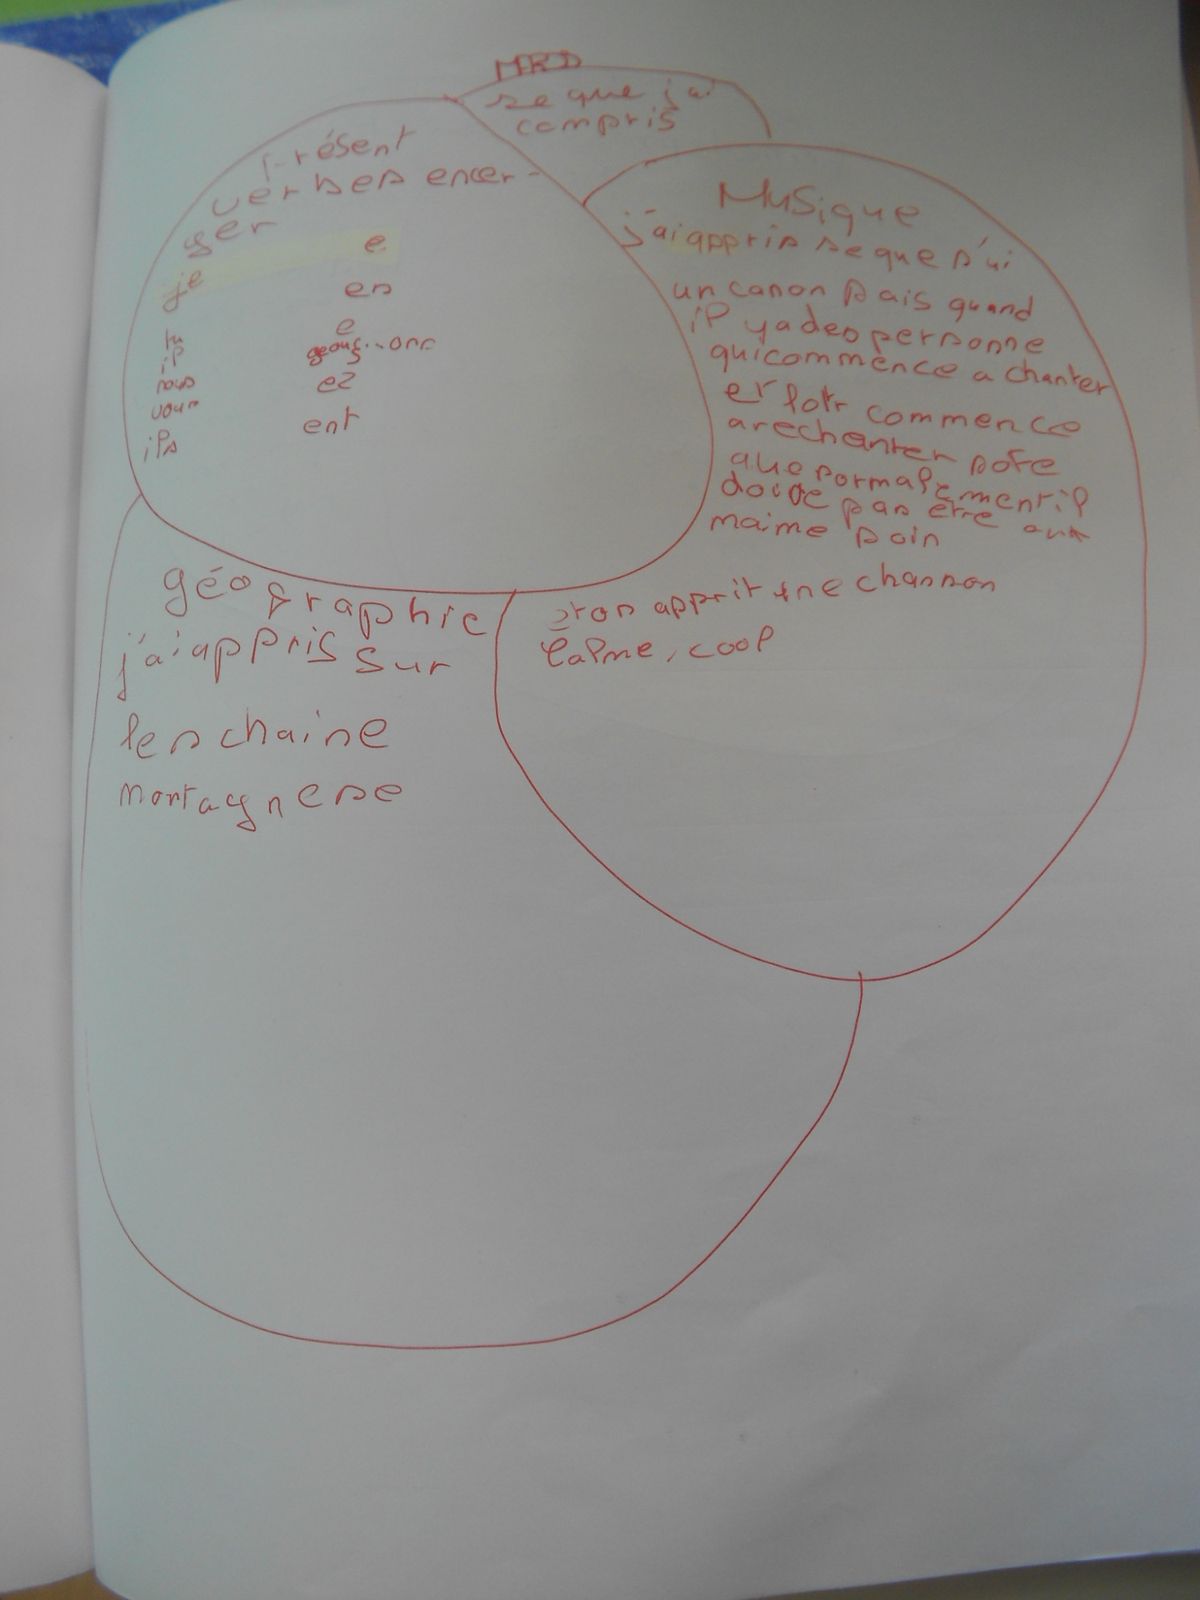 MRD
se que j'ai
compris
Présent
verbes en cer -
ger
je e
tu es
il e
nous geons...ons
vous ez
ils ent
Musique
j'ai appris se que s'ai
un canon sais quand
il ya des personne
qui commence a chanter
et lotr commence
a rechanter sofe
que normalement il
doive pas être aux
maime soin
et on apprit une chanson
calme, cool
géographie
j'ai appris sur
les chaine
montagnese